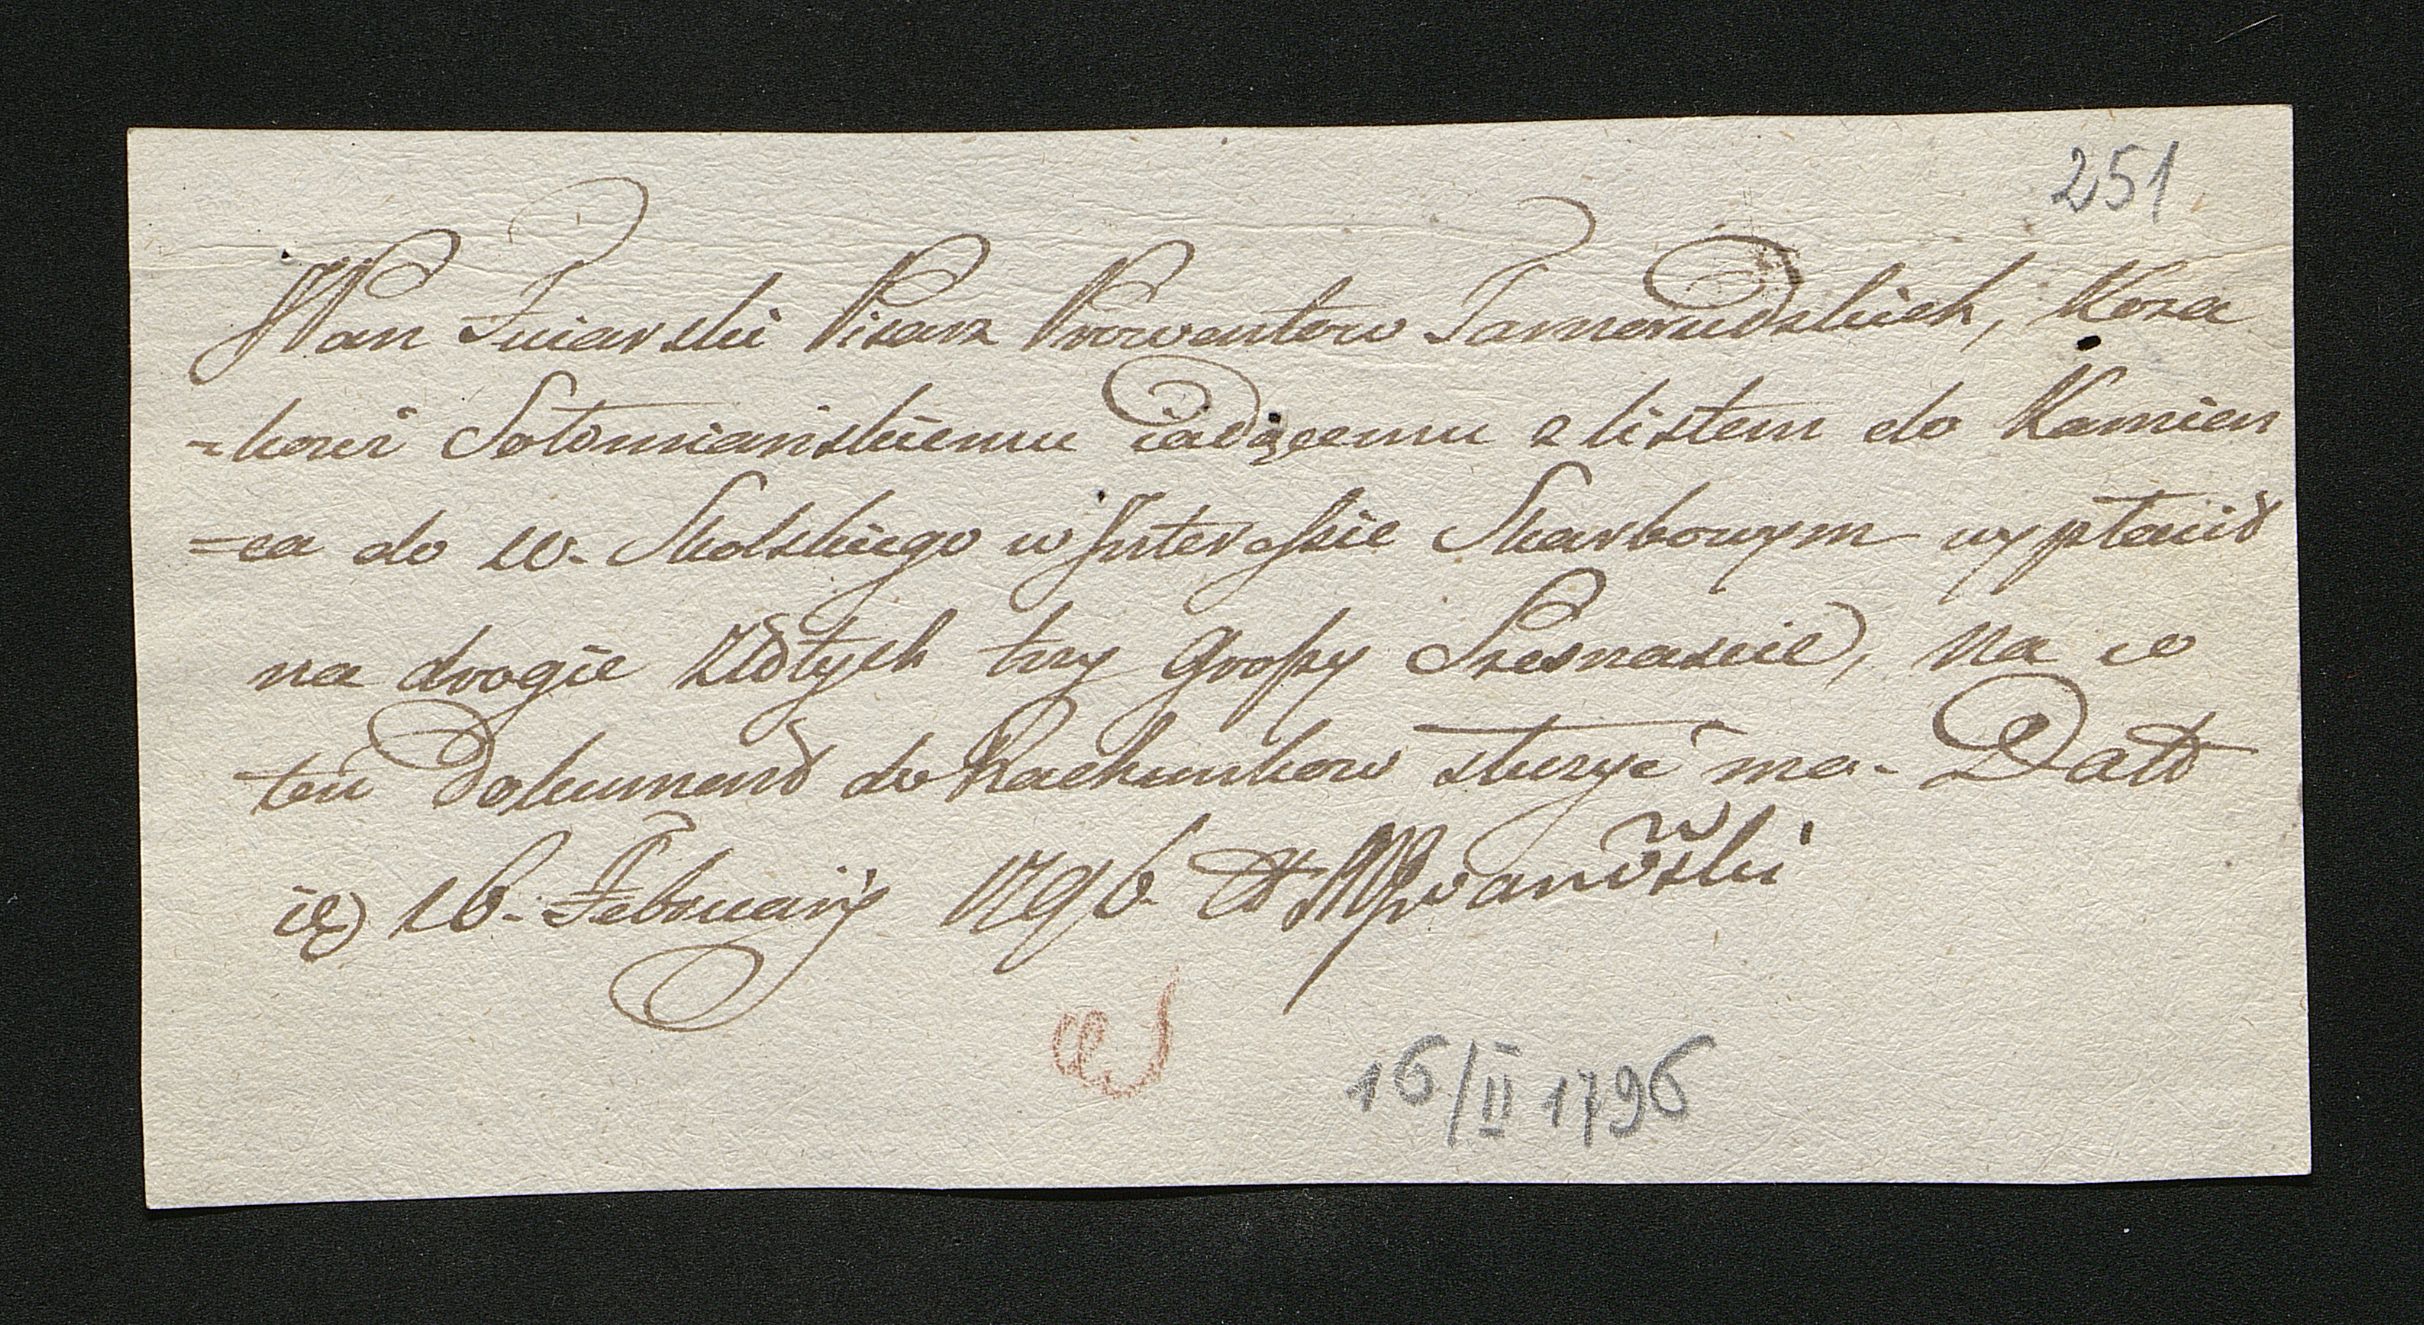 251
WPan Zniarski Pisarz Prowentow Tarnorudskich, Koza
=kowi Sołomianskiemu iadącemu z listem do Kamien
=ca do W. Skolskiego w Interessie Skarbowym wypłacił
na drogie Złotych trzy Groszy Szesnascie, na co
ten Dokument do Rachunkow słuzyć ma. Datt
16. Februarij 1796
16/II 1796